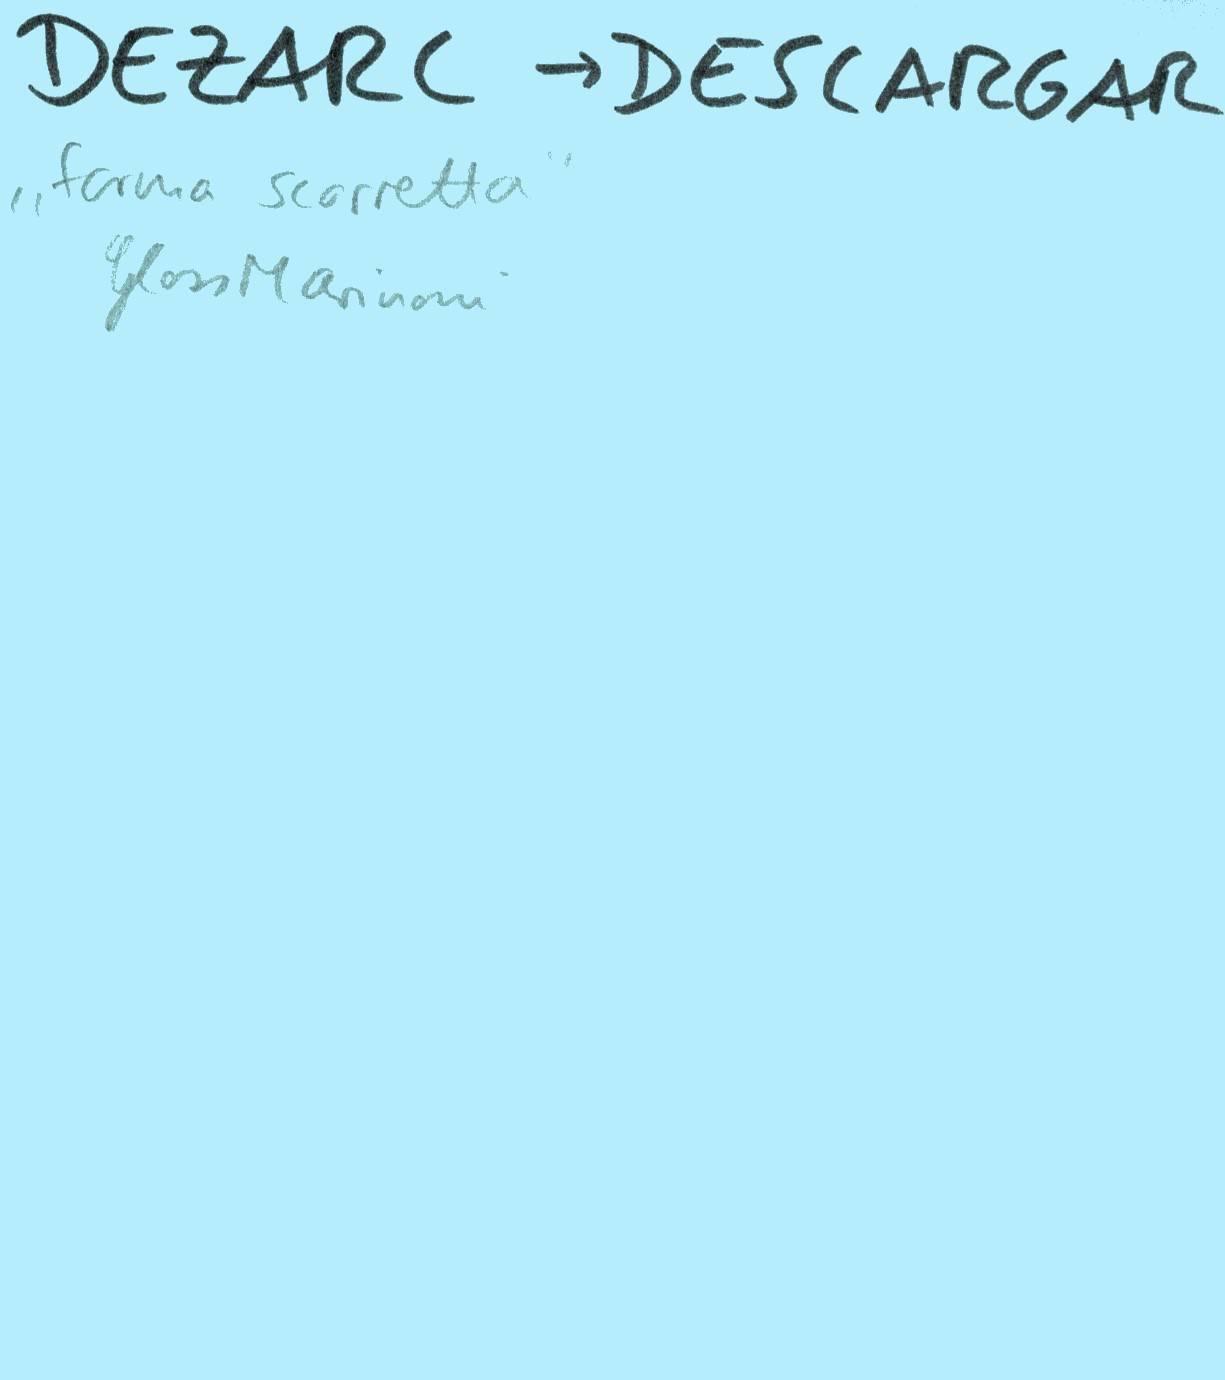 DEZARC → DESCARGAR
„forma scorretta"
GlossMarinoni